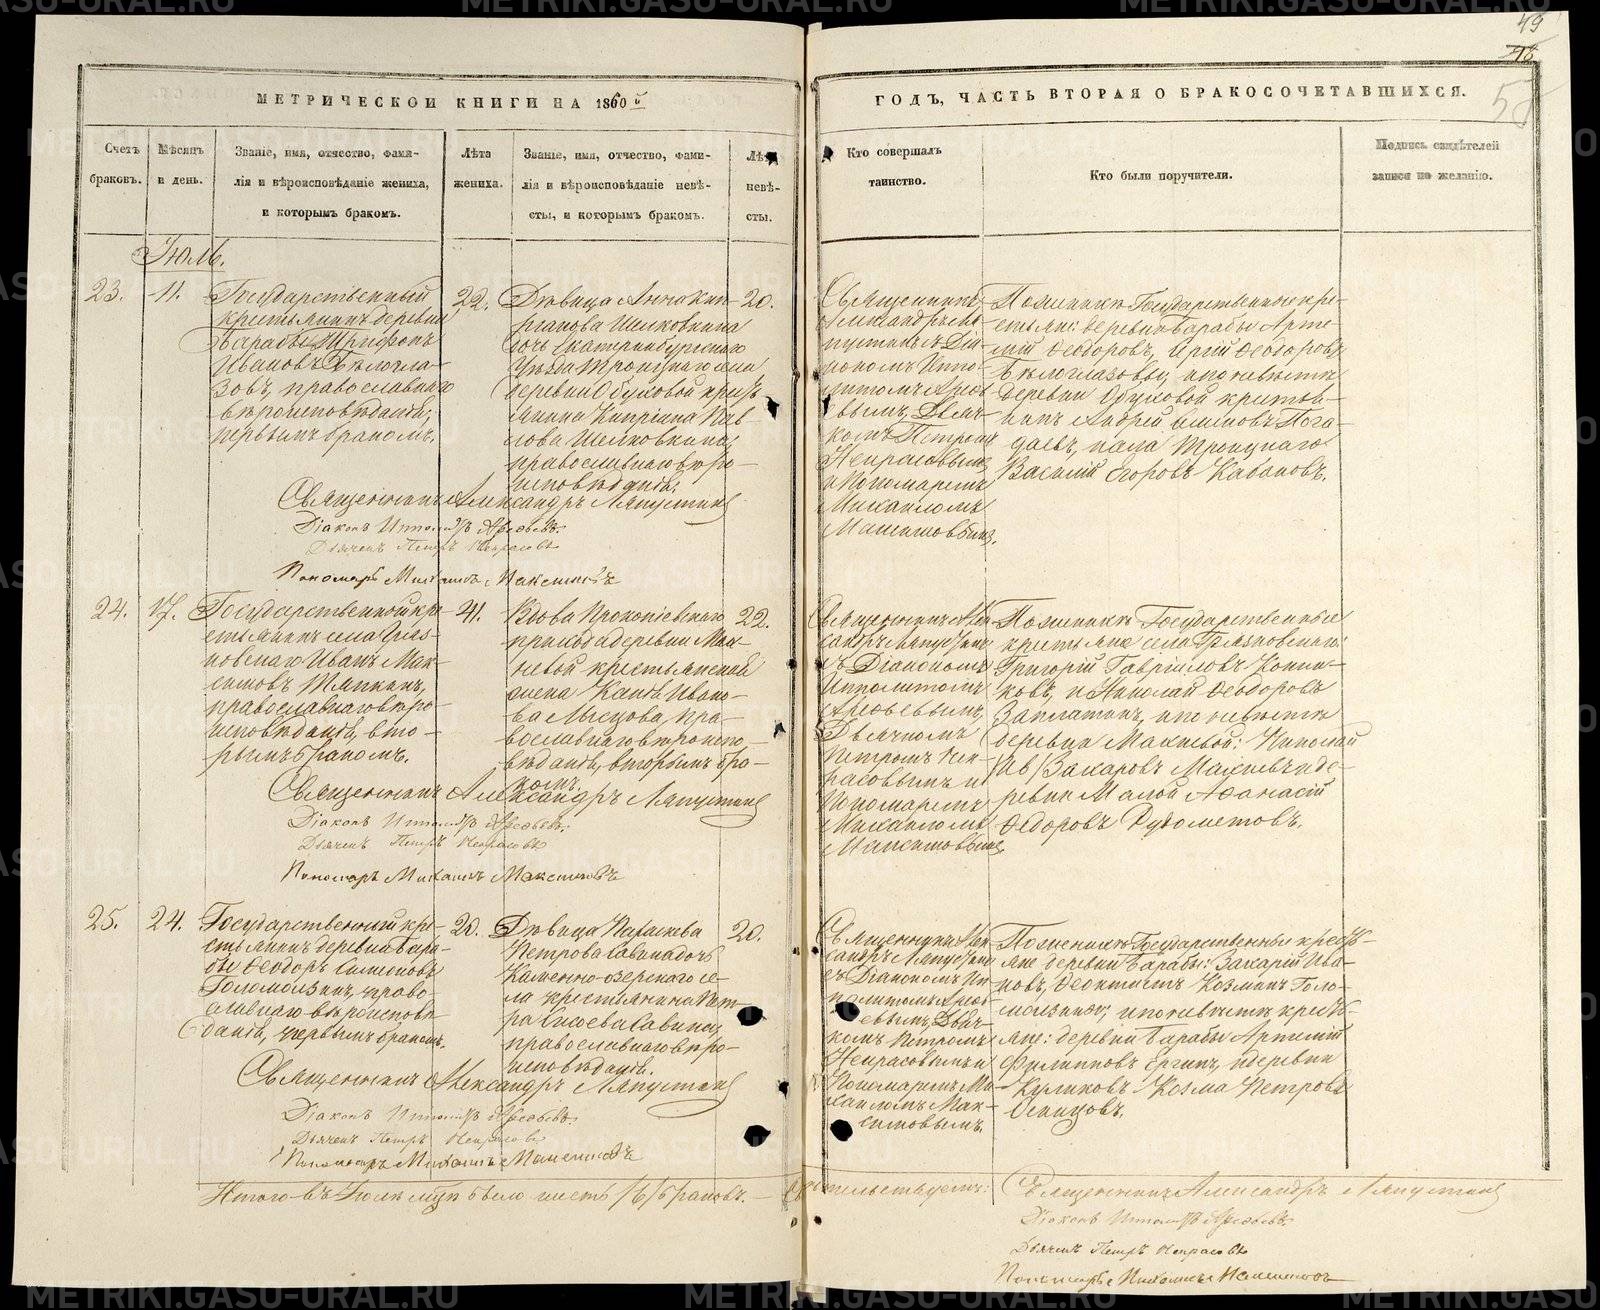 49
МЕТРИЧЕСКОЙ КНИГИ НА 1860й
ГОДЪ, ЧАСТЬ ВТОРАЯ О БРАКОСОЧЕТАВШИХСЯ.
Счетъ
браковъ.
Мѣсяцъ
и день.
Званіе, имя, отчество, фами-
лія и вѣроисповѣданіе жениха,
и которымъ бракомъ.
Лѣта
жениха.
Званіе, имя, отчество, фами-
лія и вѣроисповѣданіе невѣ-
сты, и которымъ бракомъ.
Лѣта
невѣ-
сты.
Кто совершалъ
таинство.
Кто были поручители.
Подпись свидѣтелей
записи по желанію.
Іюль.
23.
11.
Государственный
крестьянинъ деревни
Барабы Трифонъ
Ивановъ Бѣлогла-
зовъ, православнаго
вѣроисповѣданія,
первымъ бракомъ.
22.
Дѣвица Анна Кип-
ріанова Шелковкина
дочь Екатеринбургскаго
уѣзда Троицкаго села
деревни Обуховой кресть-
янина Кипріана Пав-
лова Шелковкина,
православнаго вѣро-
исповѣданія.
20.
Священникъ
Александръ Ля-
пустинъ съ Діа-
кономъ Иппо-
литомъ Арефь
евымъ, Дьяч-
комъ Петромъ
Некрасовымъ
и Пономаремъ
Михаиломъ
Максимовымъ.
Поженихѣ Государственные кре-
стьяне: деревни Барабы Арте-
мій Ѳеодоровъ, Ѳеодоровъ
Бѣлоглазовы, а по невѣстѣ
деревни Обуховой крестья-
нинъ Андрей Пога-
даевъ, села Троицкаго
Василій Егоровъ Кабановъ.
Священникъ Александръ Ляпустинъ
Діаконъ Ипполитъ Арефьевъ.
Дьячекъ Петръ Некрасовъ
Пономарь Михаилъ Максимовъ
24.
17.
Государственный кре-
стьянинъ села Гряз-
новскаго Иванъ Мак-
симовъ Тяпкинъ,
православнаго вѣро-
исповѣданія, вто-
рымъ бракомъ.
41.
Вдова Прокопіевскаго
прихода деревни Мах-
невой крестьянская
жена Ивано-
ва Мысцова, пра-
вославнаго вѣроиспо-
вѣданія, вторымъ бра-
комъ.
22.
Священникъ Алек
сандръ Ляпустинъ
съ Діакономъ
Ипполитомъ
Арефьевымъ,
Дьячкомъ
Петромъ Нек-
расовымъ и
Пономаремъ
Михаиломъ
Максимовымъ.
Поженихѣ Государственные
крестьяне села Грязновскаго:
Григорій Гавріиловъ Конни-
ковъ, и Николай Ѳеодоровъ
Заплатинъ, а по невѣстѣ
деревни Махневой: Николай
Захаровъ Махневъ и де-
ревни Малой Аѳанасій
Ѳедоровъ Рудометовъ.
Священникъ Александръ Ляпустинъ
Діаконъ Ипполитъ Арефьевъ.
Дьячекъ Петръ Некрасовъ
Пономарь Михаилъ Максимовъ
25.
24.
Государственный кре-
стьянинъ деревни Бара-
бы Ѳеодоръ Симеоновъ
Голомолзинъ, право-
славнаго вѣроисповѣ-
данія, первымъ бракомъ.
20.
Дѣвица Параскева
Петрова Савина дочь
Каменно-озерскаго се-
ла крестьянина Пет-
ра Сысоева Савина,
православнаго вѣро-
исповѣданія.
20.
Священникъ Алек
сандръ Ляпустинъ
съ Діакономъ Ип
политомъ Арефь
евымъ, Дьяч-
комъ Петромъ
Некрасовымъ и
Пономаремъ Ми
хаиломъ Мак-
симовымъ.
Поженихѣ Государственные кресть-
яне деревни Барабы: Захарій Ива-
новъ, Ѳеоктистъ Козминъ Голо-
молзины; а по невѣстѣ кресть-
яне: деревни Барабы Артемій
Филипповъ Ергинъ, и деревни
Куликовъ Козма Петровъ
Осинцовъ.
Священникъ Александръ Ляпустинъ
Діаконъ Ипполитъ Арефьевъ.
Дьячекъ Петръ Некрасовъ
Пономарь Михаилъ Максимовъ
Итого въ Іюлѣ мцѣ было шесть /6/ браковъ. —
Свидѣтельствуемъ: Священникъ Александръ Ляпустинъ
Діаконъ Ипполитъ Арефьевъ.
Дьячекъ Петръ Некрасовъ
Пономарь Михаилъ Максимовъ
METRIKI.GASO-URAL.RU